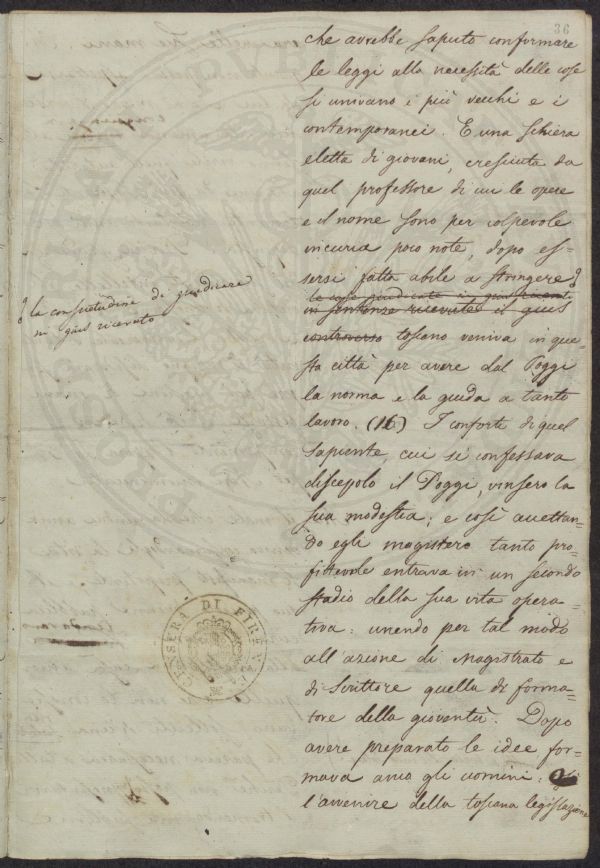 36
che avrebbe saputo conformare
le leggi alla necessità delle cose
si univano i più vecchi e i
contemporanei. E una schiera
eletta di giovani, cresciuta da
quel professore di cui le opere
e il nome sono per colpevole
incuria poco note, dopo es-
sersi fatta abile a stringere
le cose giudicate
in sentenze ricevute il gius
controverso toscano veniva in que-
sta città per avere dal Poggi
la norma e la guida a tanto
lavoro. (16) I conforti di quel
Sapiente, cui si confessava
discepolo il Poggi, vinsero la
sua modestia; e così accettan-
do egli magistero tanto pro-
fittevole entrava in un secondo
stadio della sua vita opera-
tiva: unendo per tal modo
all'azione di Magistrato e
di Scrittore quella di forma-
tore della gioventù. Dopo
avere preparato le idee for-
mava anco gli uomini:
l'avvenire della toscana legislazione
la consuetudine di giudicare
in gius ricevuto
CENSURA DI FIRENZE